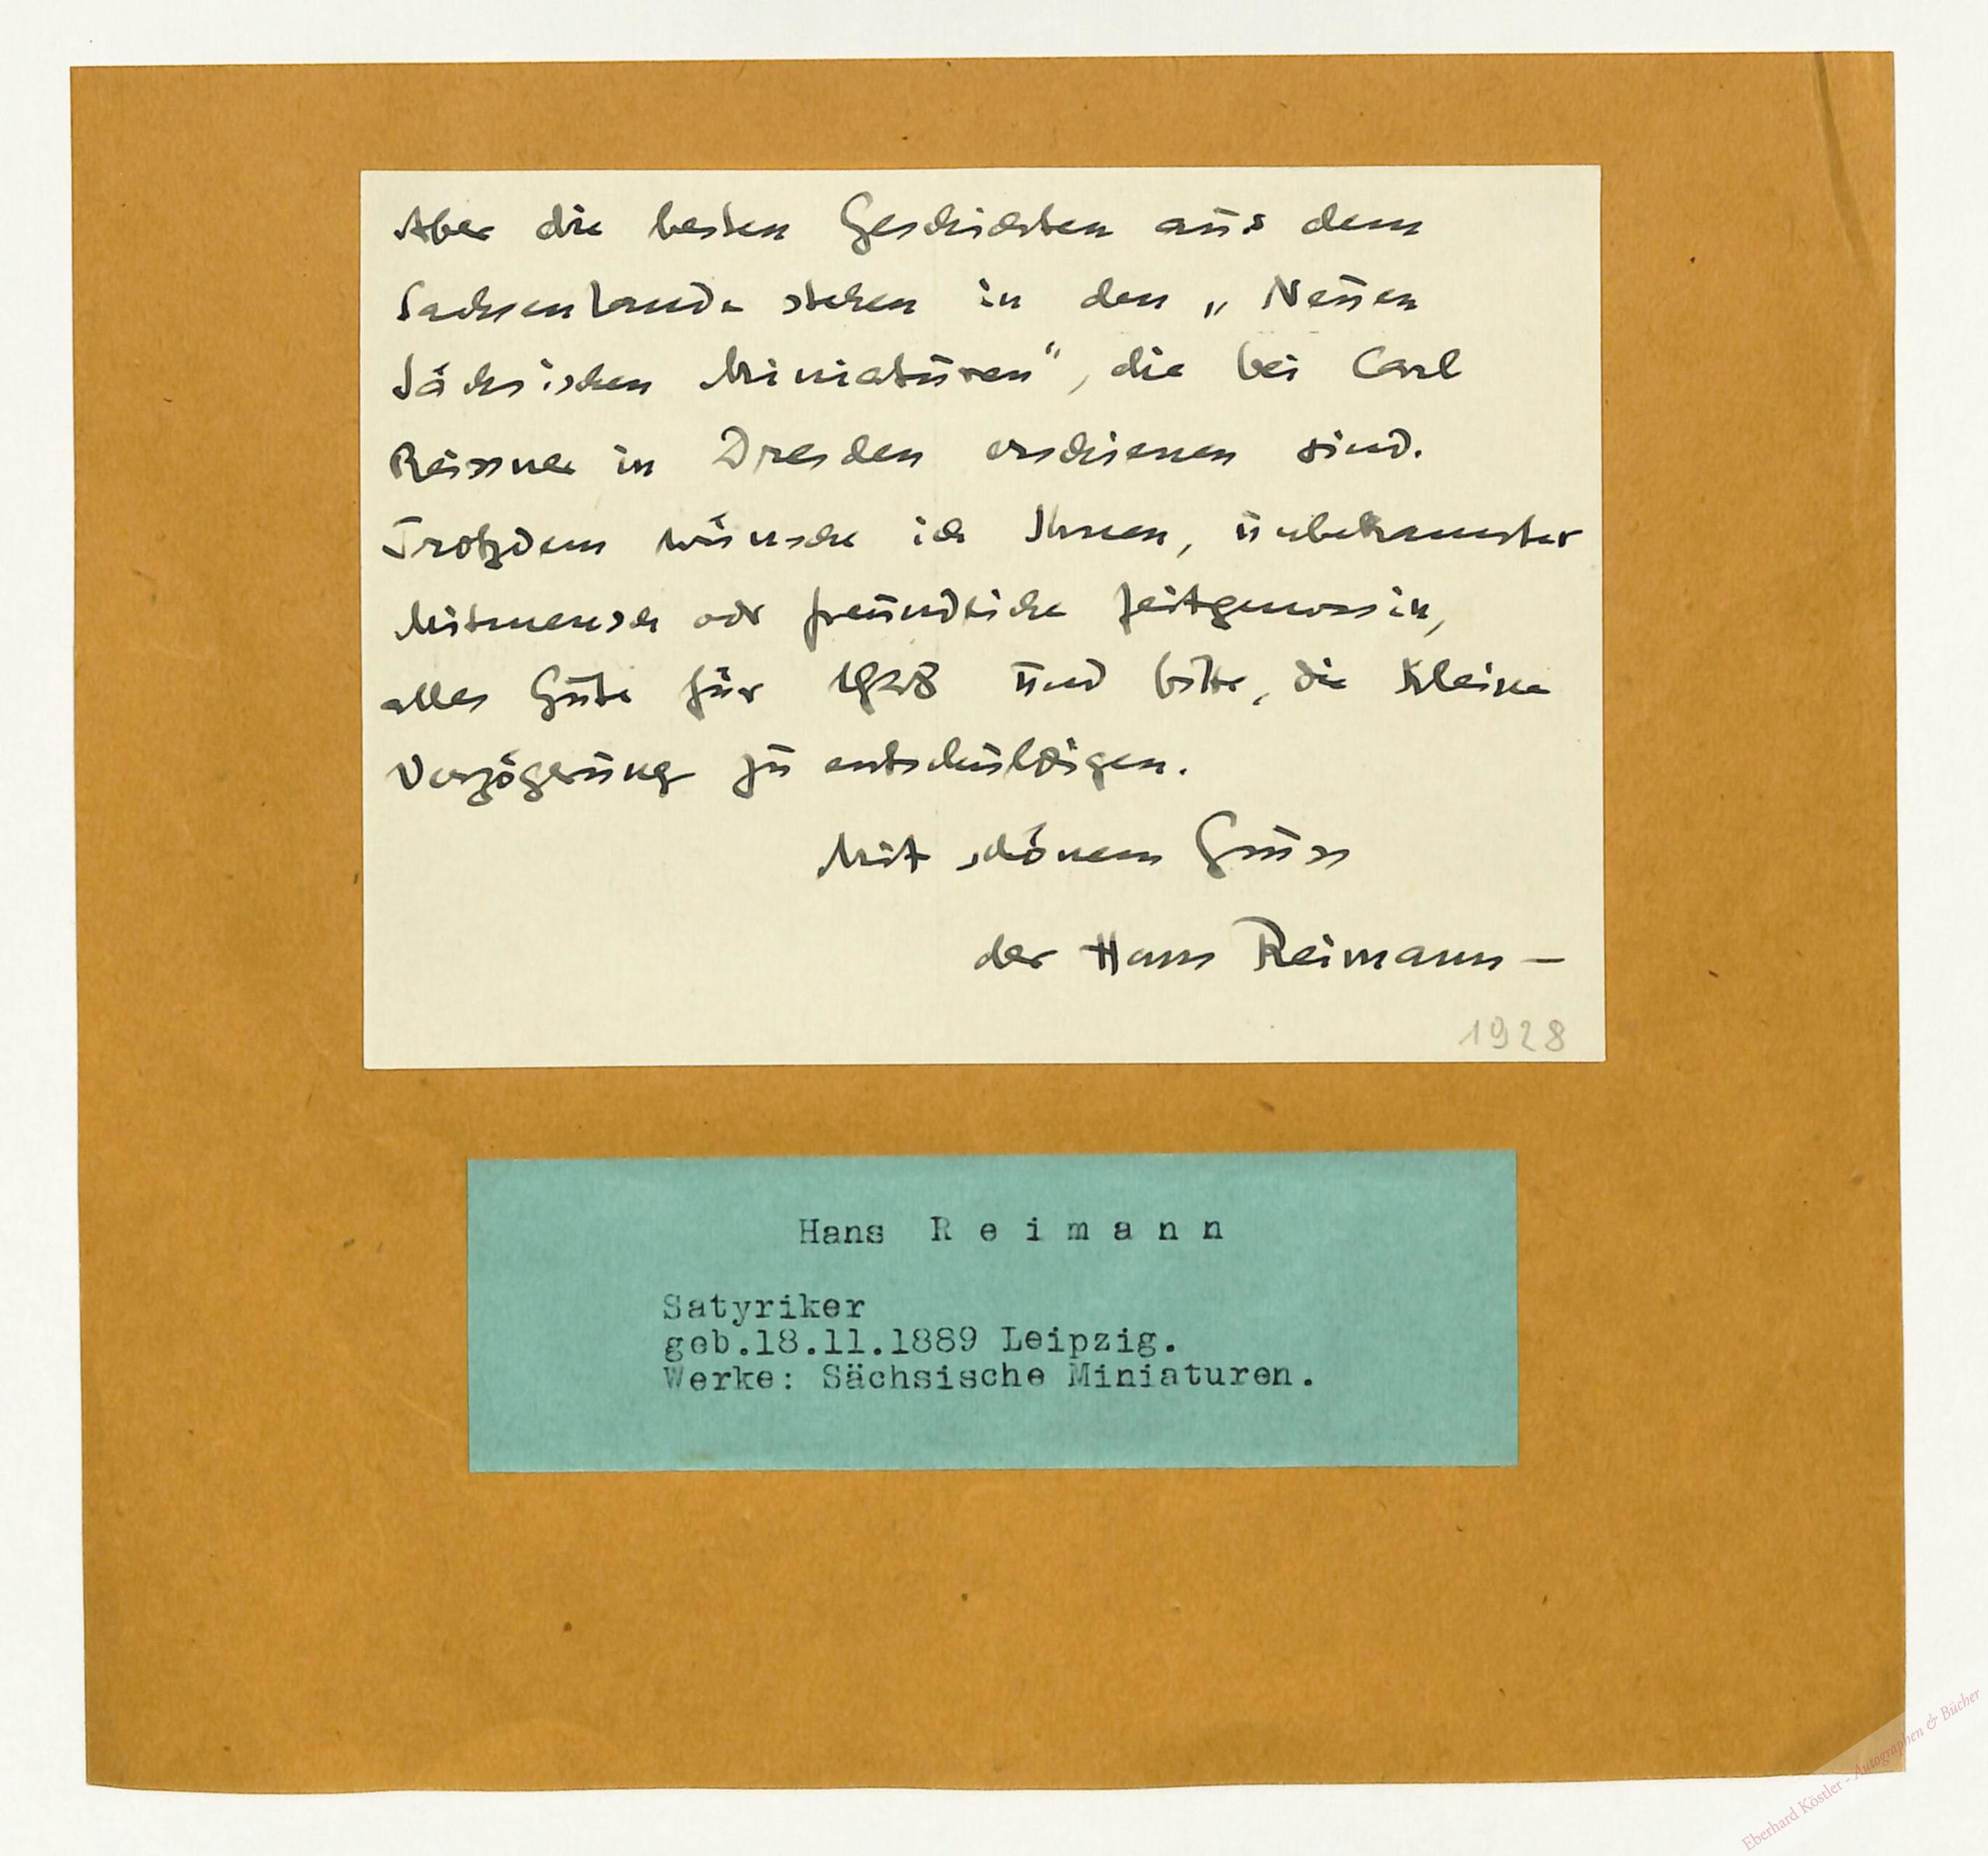 Aber die besten Geschichten aus dem
Sachsenlande stehen in den „Neuen
Sächsischen Miniaturen“, die bei Carl
Reissner in Dresden erschienen sind.
Trotzdem wünsche ich Ihnen, unbekannter
Mitmensch oder freundliche Zeitgenossin,
alles Gute für 1928 und bitte, die kleine
Verzögerung zu entschuldigen.
Mit schönem Gruss
der Hans Reimann —
1928
Hans R e i m a n n
Satyriker
geb.18.11.1889 Leipzig.
Werke: Sächsische Miniaturen.
Eberhard Köstler - Autographen & Bücher